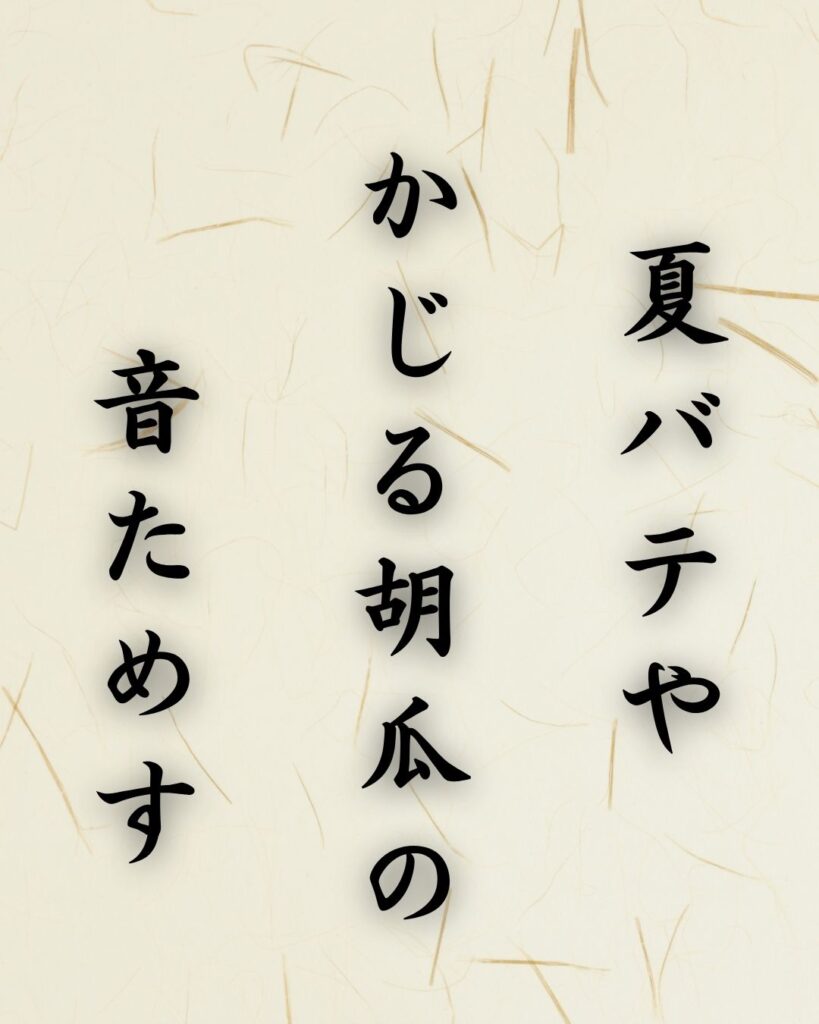 夏バテや
かじる胡瓜の
音ためす